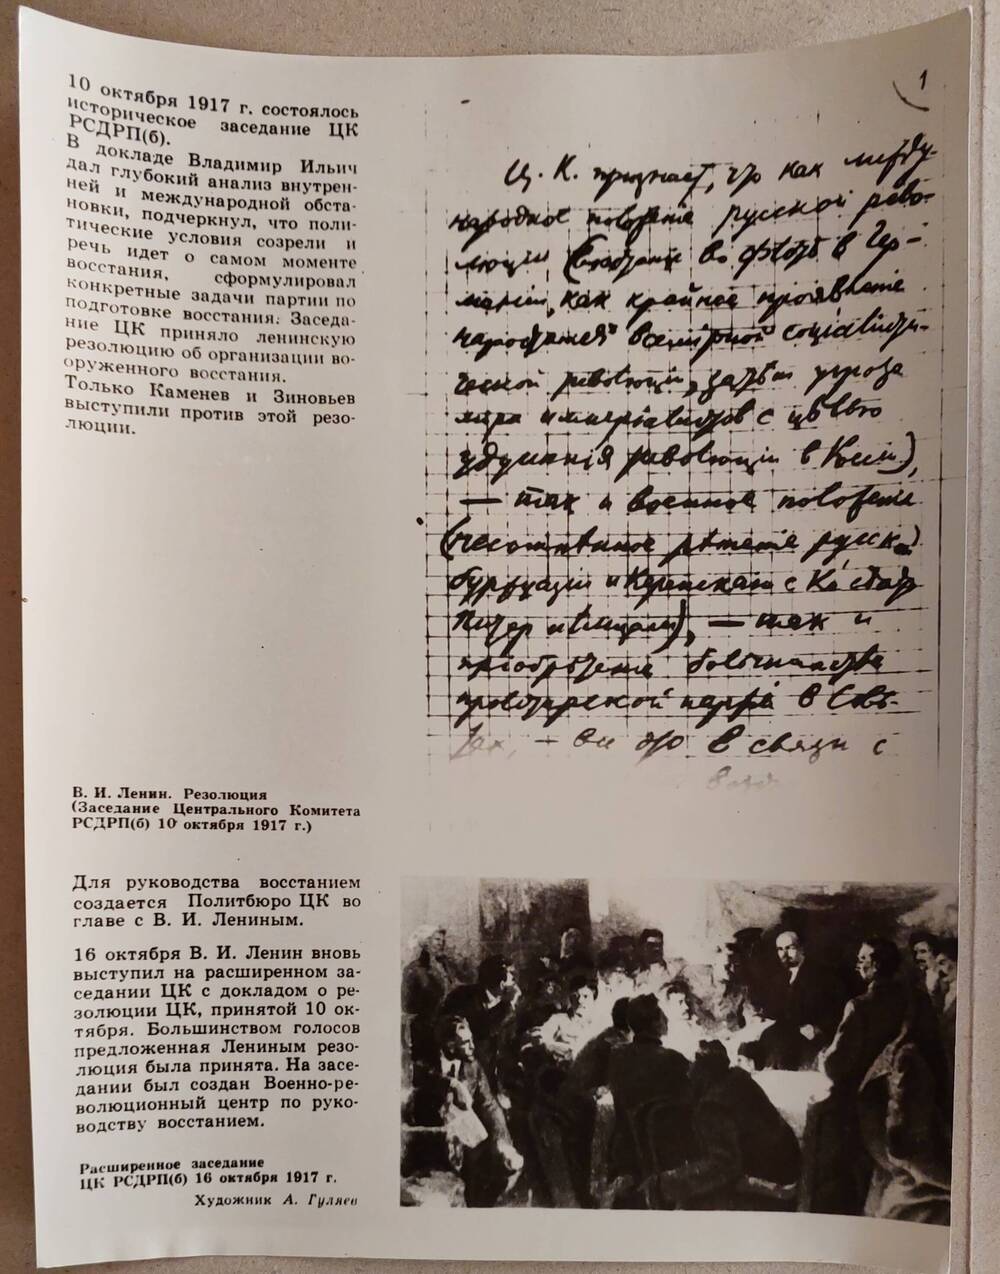 10 октября 1917 г. состоялось
историческое заседание ЦК
РСДРП(б).
В докладе Владимир Ильич
дал глубокий анализ внутрен-
ней и международной обста-
новки, подчеркнул, что поли-
тические условия созрели и
речь идет о самом моменте
восстания, сформулировал
конкретные задачи партии по
подготовке восстания. Заседа-
ние ЦК приняло ленинскую
резолюцию об организации во-
оруженного восстания.
Только Каменев и Зиновьев
выступили против этой резо-
люции.
1
Ц. К. признает, что как между-
народное положение русской рево-
люции (восстание во флоте в Гер-
мании, как крайнее проявление
нарастания всемірной соціалисти-
ческой революціи, затем угроза
мира имперіалистов с целью
удушенія революціи в Россіи),
— так и военное положение
(несомненное решение русской
буржуазіи и Керенскаго с Ко сдать
Питер немцам), — так и
пріобретение большинства
пролетарской партией в Сове-
тах, — все это в связи с
В. И. Ленин. Резолюция
(Заседание Центрального Комитета
РСДРП(б) 10 октября 1917 г.)
Для руководства восстанием
создается Политбюро ЦК во
главе с В. И. Лениным.
16 октября В. И. Ленин вновь
выступил на расширенном за-
седании ЦК с докладом о ре-
золюции ЦК, принятой 10 ок-
тября. Большинством голосов
предложенная Лениным резо-
люция была принята. На засе-
дании был создан Военно-ре-
волюционный центр по руко-
водству восстанием.
Расширенное заседание
ЦК РСДРП(б) 16 октября 1917 г.
Художник А. Гуляев